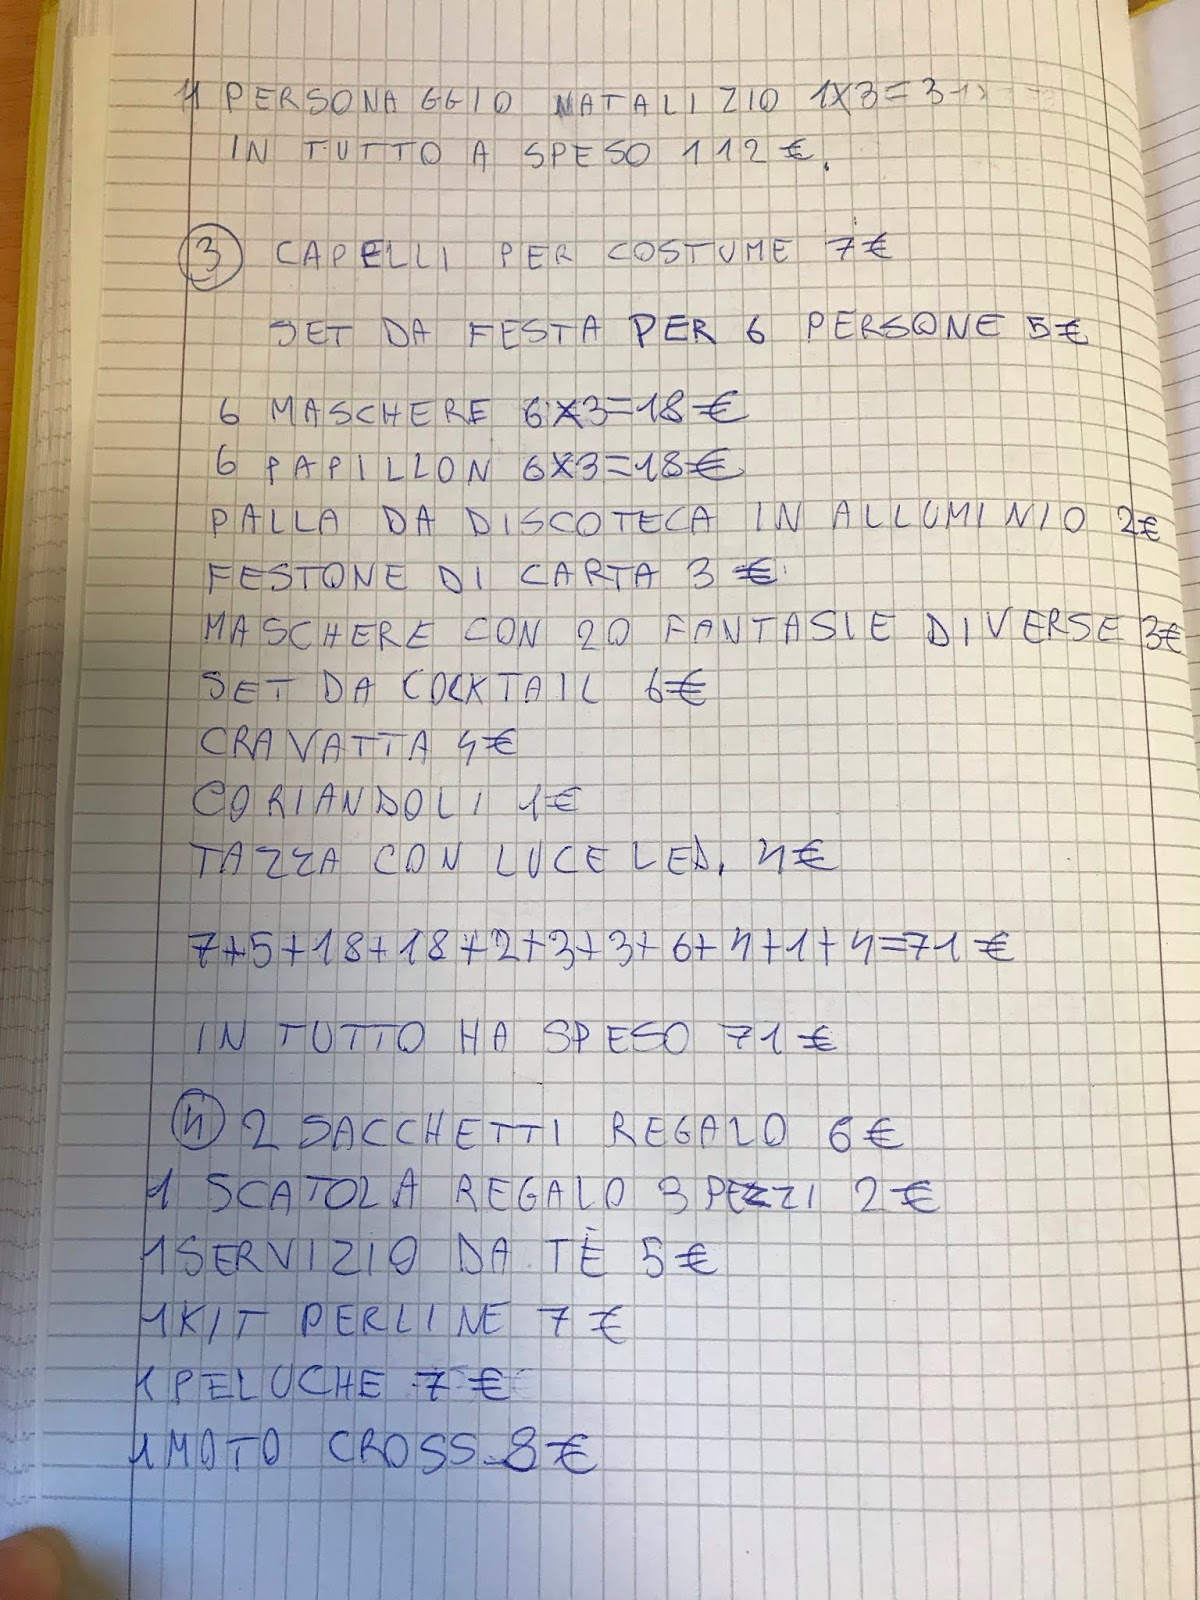 1 PERSONAGGIO NATALIZIO 1X3=3
IN TUTTO A SPESO 112 €.
3 CAPELLI PER COSTUME 7€
SET DA FESTA PER 6 PERSONE 5€
6 MASCHERE 6X3=18€
6 PAPILLON 6X3=18€
PALLA DA DISCOTECA IN ALLUMINIO 2€
FESTONE DI CARTA 3 €
MASCHERE CON 20 FANTASIE DIVERSE 3€
SET DA COCKTAIL 6€
CRAVATTA 4€
CORIANDOLI 1€
TAZZA CON LUCE LED. 4€
7+5+18+18+2+3+3+6+4+1+4=71€
IN TUTTO HA SPESO 71€
4 2 SACCHETTI REGALO 6€
1 SCATOLA REGALO 3 PEZZI 2€
1 SERVIZIO DA TÈ 5€
1 KIT PERLINE 7€
1 PELUCHE 7€
1 MOTO CROSS 8€